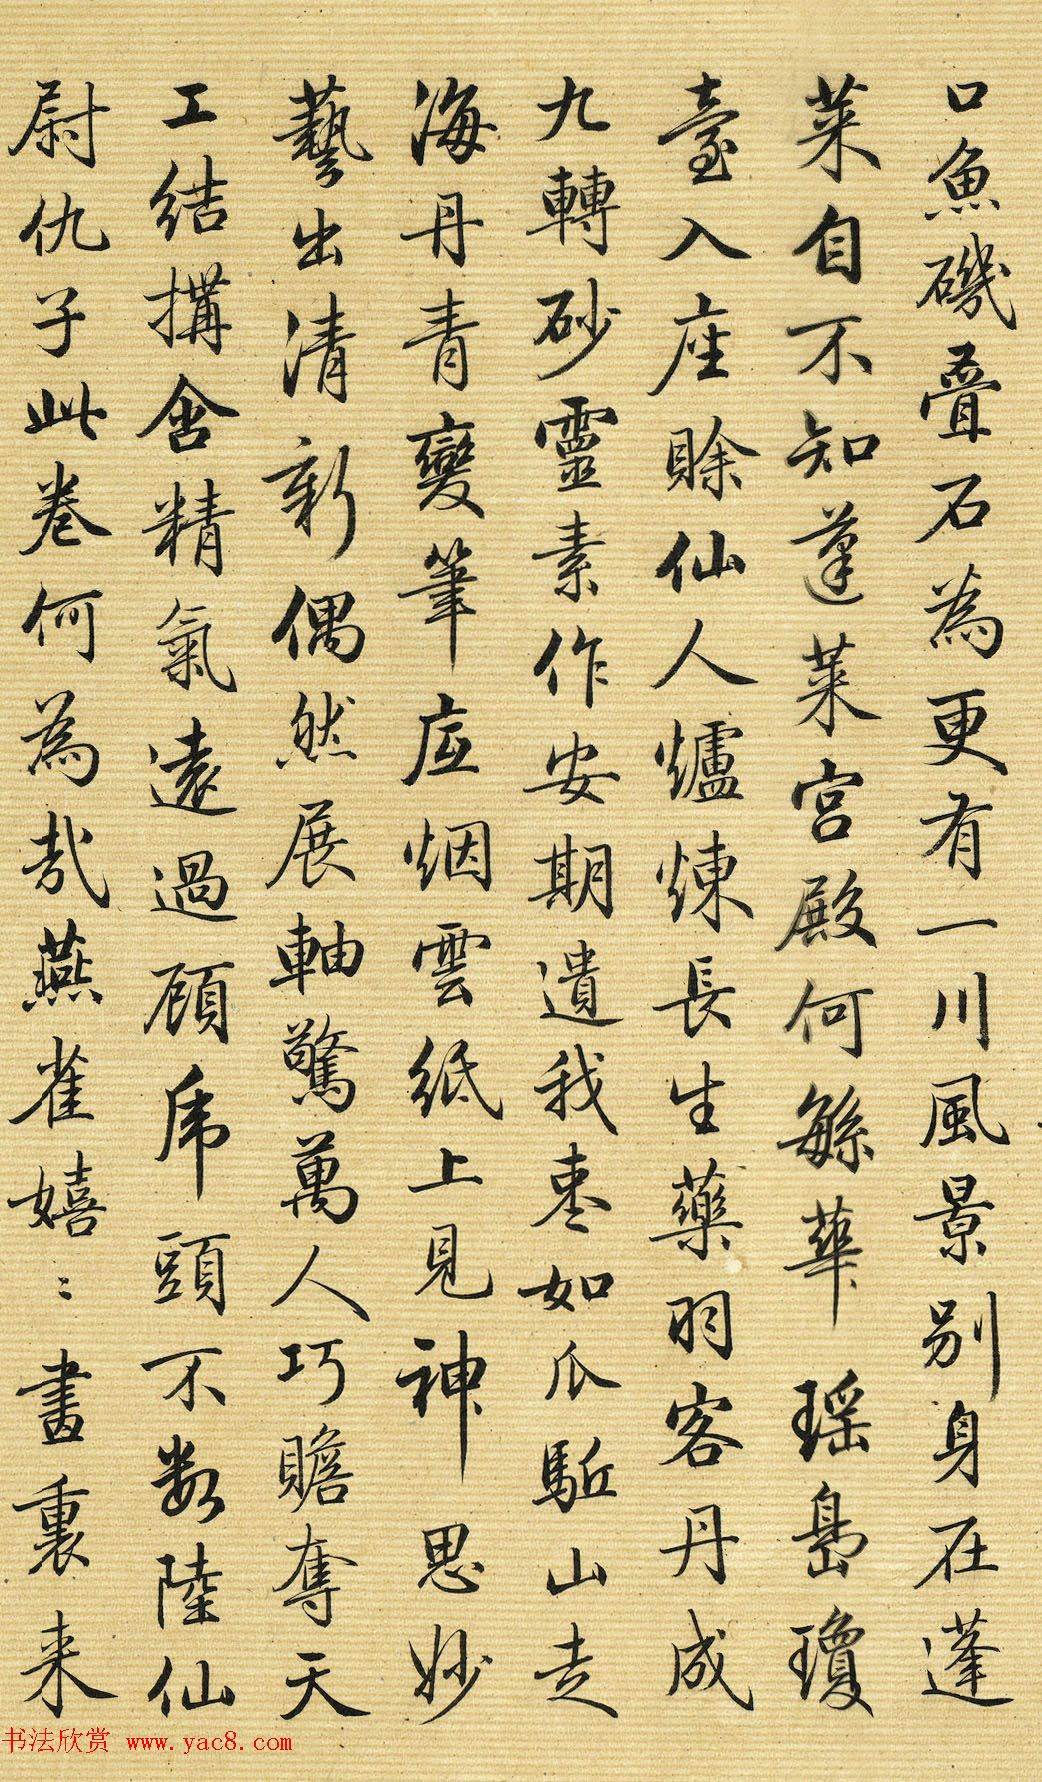 口魚磯疊石為更有一川風景別身在蓬
萊自不知蓬萊宮殿何繇華瑤島瓊
臺入座賒仙人爐煉長生藥羽客丹成
九轉砂靈素作安期遺我棗如瓜駈山走
海丹青變筆底烟雲紙上見神思妙
藝出清新偶然展軸驚萬人巧瞻奪天
工結搆含精氣遠過顧虎頭不数陸仙
尉仇子此卷何為哉燕雀嬉〻畫裏来
书法欣赏 www.yac8.com